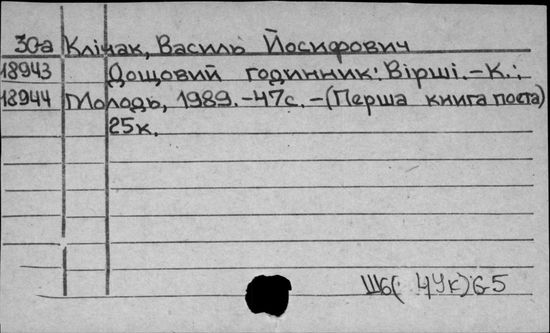 30a Клічак, Василь Йосифович
18943 Дощовий годинник: Вірші.-К.:
18944 Молодь, 1989.-47с.-(Перша книга поета)
25к.
Ш6( 4Ук)6-5